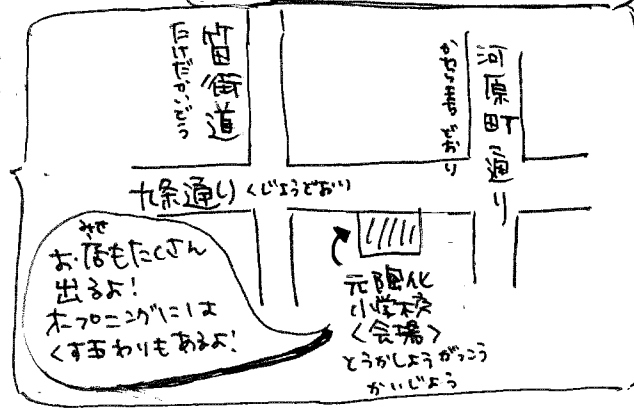 竹田街道
たけだかいどう
河原町通り
かわらまちどおり
九条通り くじょうどおり
みせ
お店もたくさん
出るよ!
オープニングには
くす玉わりもあるよ!
元陶化
小学校
<会場>
とうかしょうがっこう
かいじょう